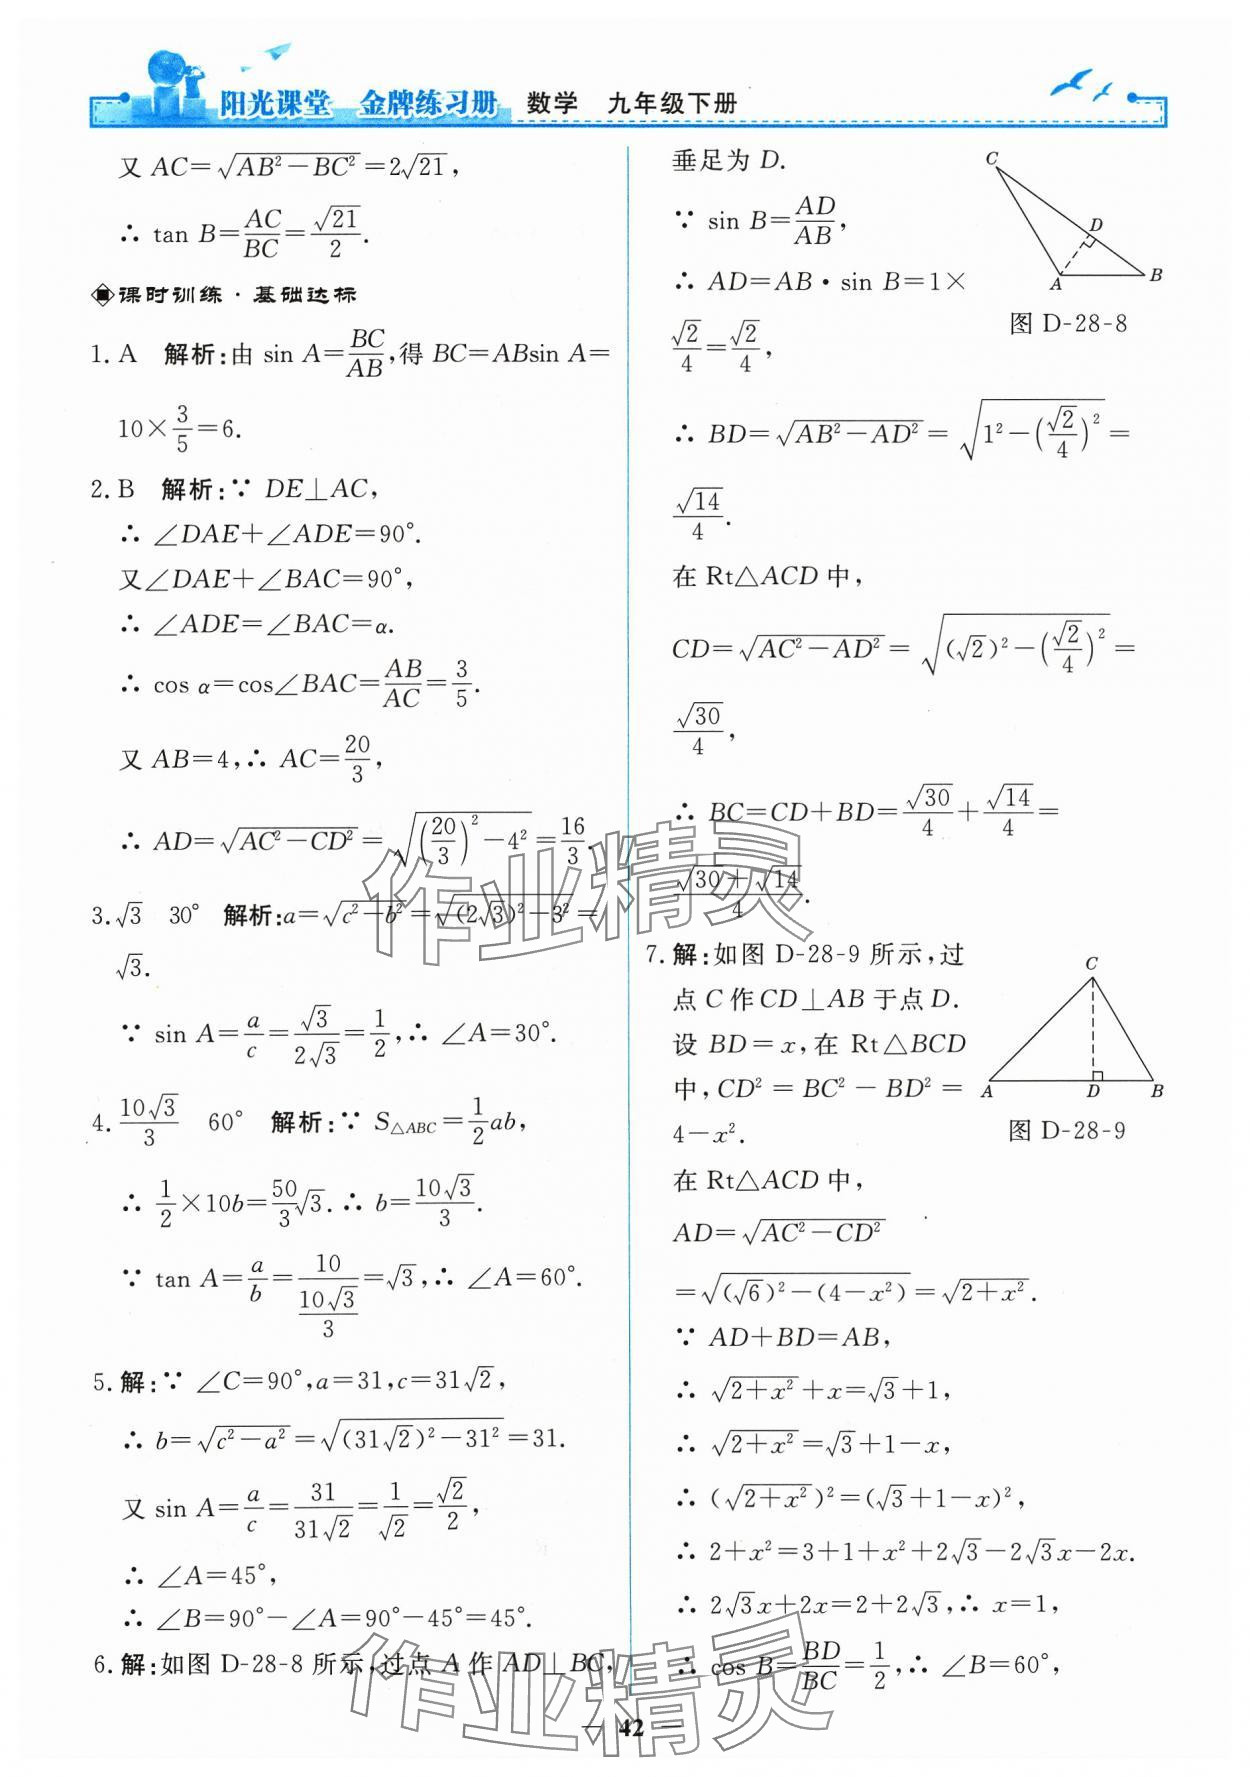 阳光课堂 金牌练习册 数学 九年级下册
又 AC=√(AB²-BC²)=2√21,
∴ tan B=AC/BC=√21/2.
课时训练·基础达标
1. A 解析:由 sin A=BC/AB,得 BC=ABsin A=
10×3/5=6.
2. B 解析:∵ DE⊥AC,
∴ ∠DAE+∠ADE=90°.
又∠DAE+∠BAC=90°,
∴ ∠ADE=∠BAC=α.
∴ cos α=cos∠BAC=AB/AC=3/5.
又 AB=4,∴ AC=20/3,
∴ AD=√(AC²-CD²)=√((20/3)²-4²)=16/3.
3. √3 30° 解析:a=√(c²-b²)=√((2√3)²-3²)=
√3.
∵ sin A=a/c=√3/(2√3)=1/2,∴ ∠A=30°.
4. 10√3/3 60° 解析:∵ S△ABC=1/2ab,
∴ 1/2×10b=50/3√3.∴ b=10√3/3.
∵ tan A=a/b=10/(10√3/3)=√3,∴ ∠A=60°.
5. 解:∵ ∠C=90°,a=31,c=31√2,
∴ b=√(c²-a²)=√((31√2)²-31²)=31.
又 sin A=a/c=31/(31√2)=1/√2=√2/2,
∴ ∠A=45°,
∴ ∠B=90°-∠A=90°-45°=45°.
6. 解:如图 D-28-8 所示,过点 A 作 AD⊥BC,
垂足为 D.
∵ sin B=AD/AB,
∴ AD=AB·sin B=1×
√2/4=√2/4,
C
D
A
B
图 D-28-8
∴ BD=√(AB²-AD²)=√(1²-(√2/4)²)=
√14/4.
在 Rt△ACD 中,
CD=√(AC²-AD²)=√((√2)²-(√2/4)²)=
√30/4,
∴ BC=CD+BD=√30/4+√14/4=
(√30+√14)/4.
7. 解:如图 D-28-9 所示,过
点 C 作 CD⊥AB 于点 D.
设 BD=x,在 Rt△BCD
中,CD²=BC²-BD²=
4-x².
C
A
D
B
图 D-28-9
在 Rt△ACD 中,
AD=√(AC²-CD²)
=√((√6)²-(4-x²))=√(2+x²).
∵ AD+BD=AB,
∴ √(2+x²)+x=√3+1,
∴ √(2+x²)=√3+1-x,
∴ (√(2+x²))²=(√3+1-x)²,
∴ 2+x²=3+1+x²+2√3-2√3x-2x.
∴ 2√3x+2x=2+2√3,∴ x=1,
∴ cos B=BD/BC=1/2,∴ ∠B=60°,
作业精灵
作业精灵
— 42 —